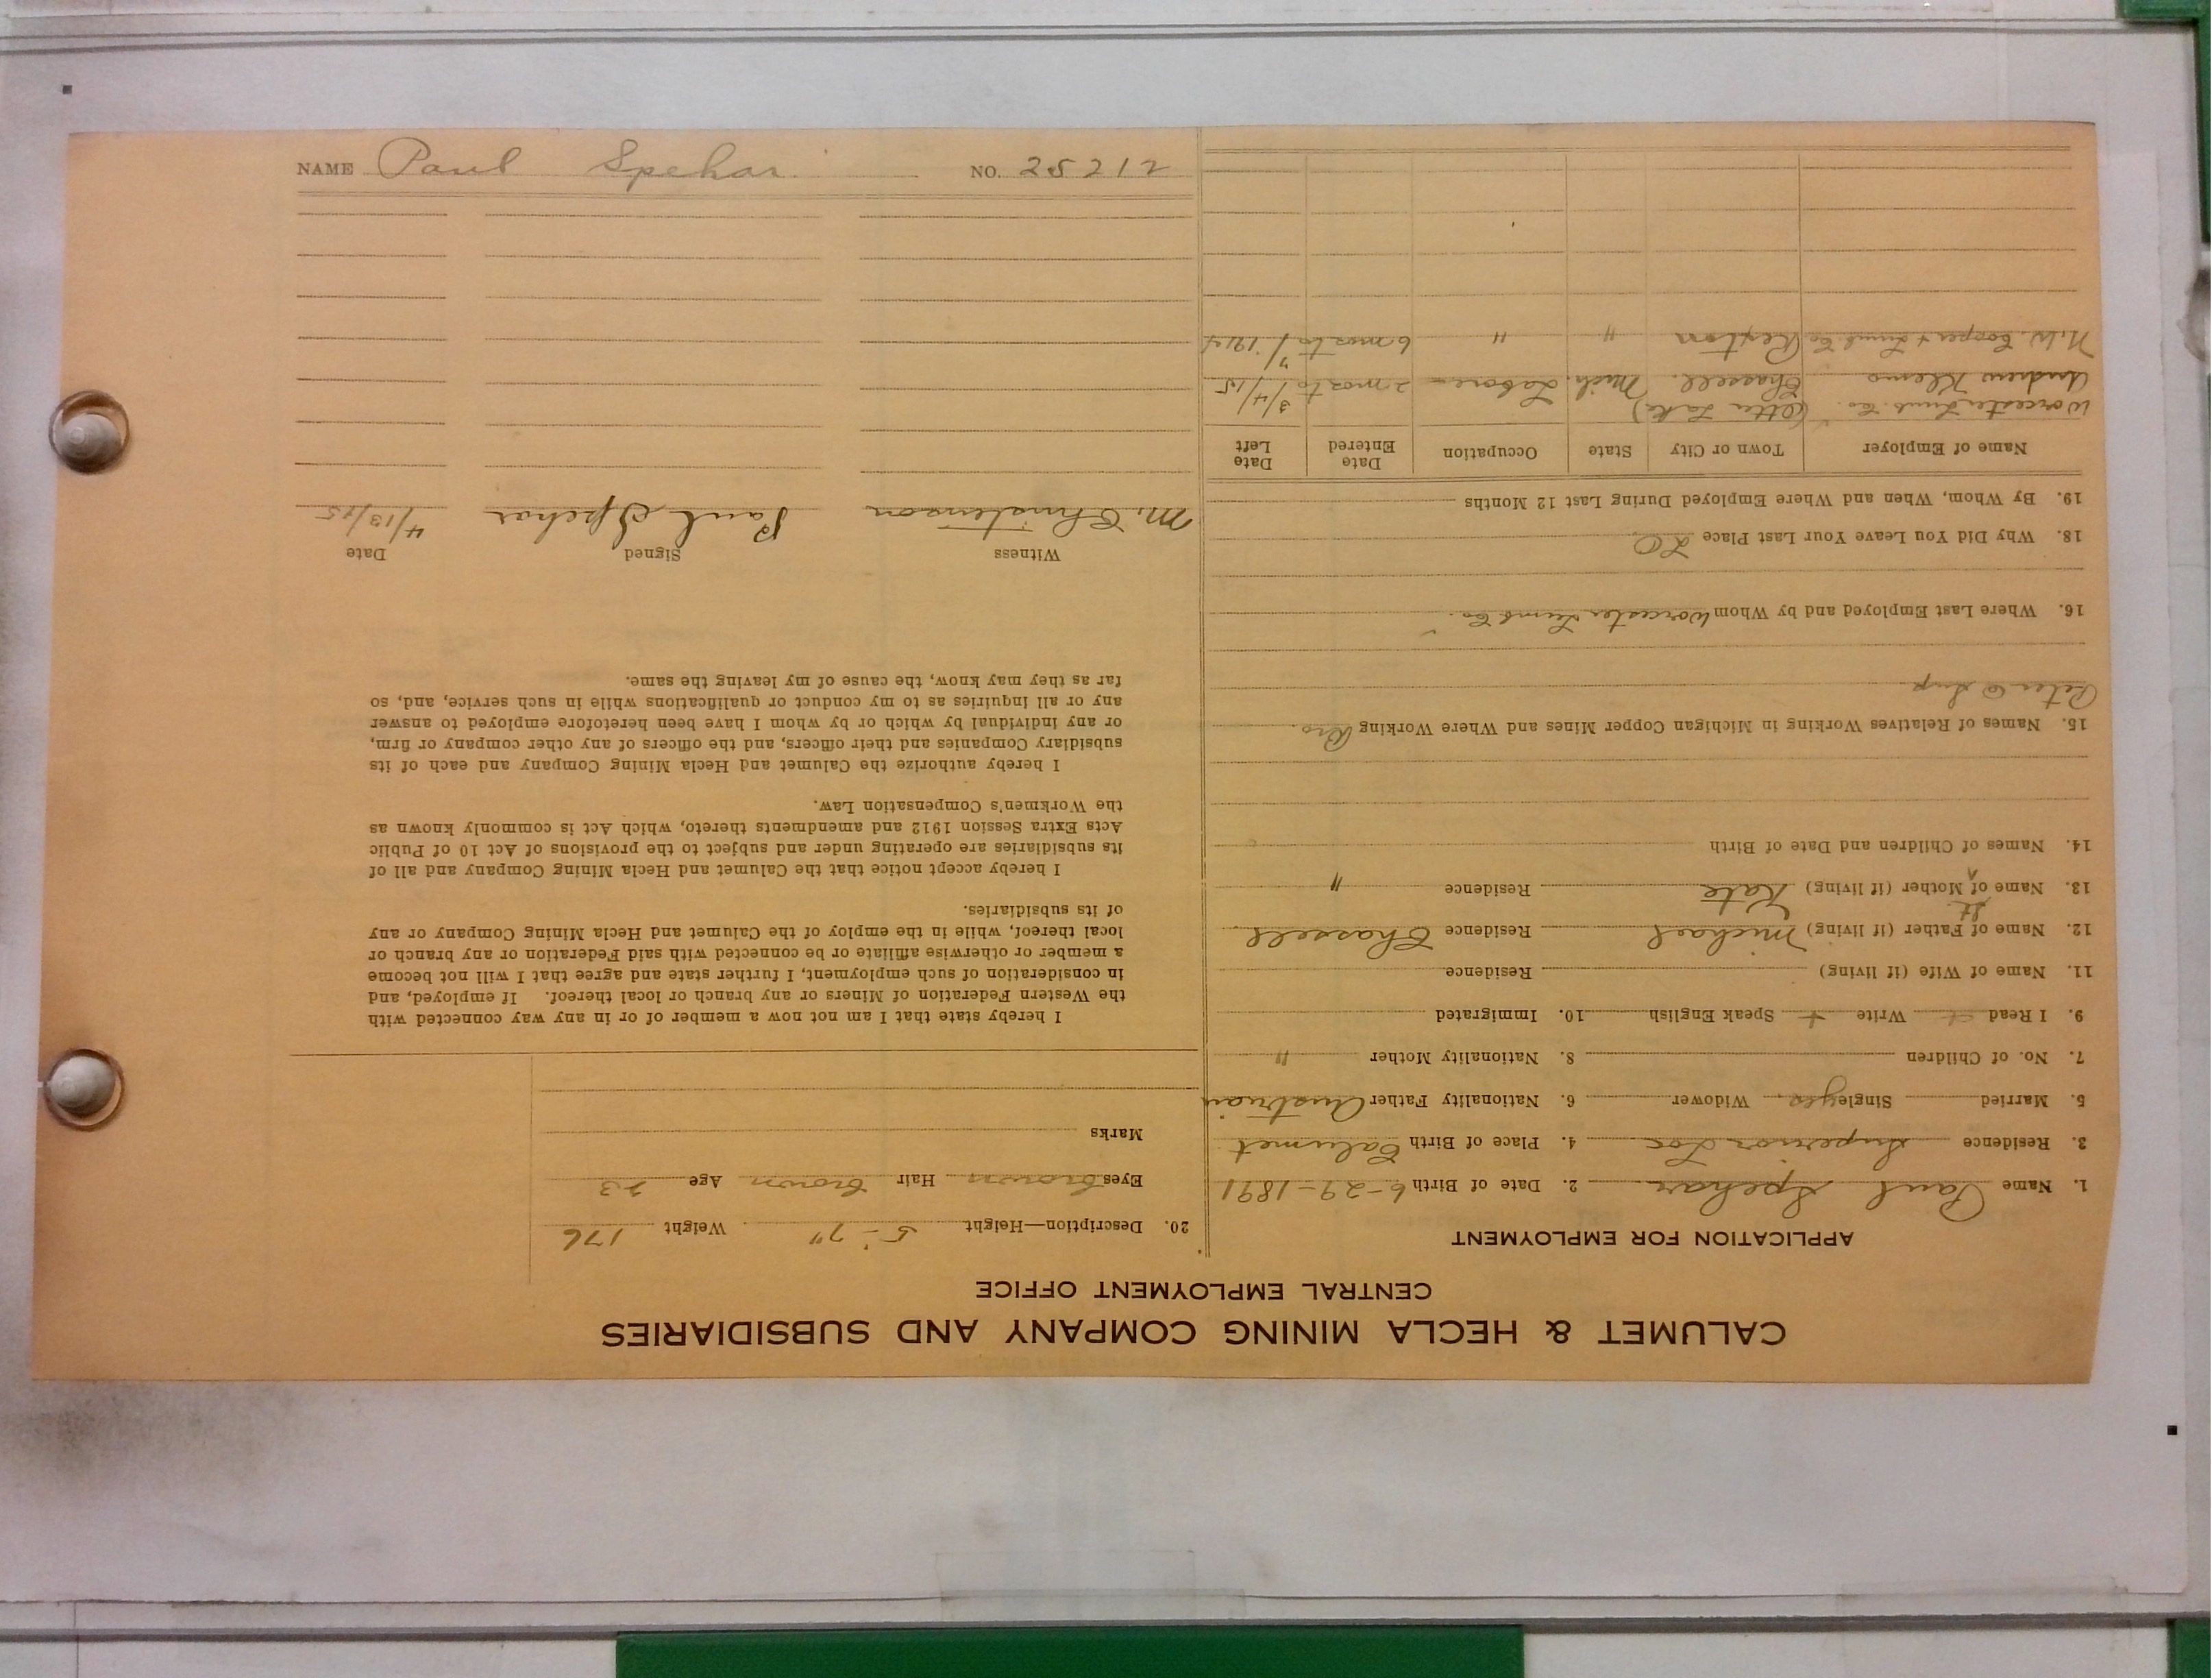 NAME Paul Spehar NO. 25212
CALUMET & HECLA MINING COMPANY AND SUBSIDIARIES
CENTRAL EMPLOYMENT OFFICE
APPLICATION FOR EMPLOYMENT
1. Name Paul Spehar 2. Date of Birth 6-29-1891
3. Residence Superior Loc 4. Place of Birth Calumet
5. Married Single yes. Widower 6. Nationality Father Austrian
7. No. of Children 8. Nationality Mother "
9. I Read + Write + Speak English 10. Immigrated
11. Name of Wife (if living) Residence
12. Name of Father (if living) Michael Residence Chassell
13. Name of St Mother (if living) Kate Residence "
14. Names of Children and Date of Birth
15. Names of Relatives Working in Michigan Copper Mines and Where Working Bro
Peter @ Sup
16. Where Last Employed and by Whom Worcester Lumb Co.
18. Why Did You Leave Your Last Place LO
19. By Whom, When and Where Employed During Last 12 Months
Name of Employer Town or City State Occupation Date Entered Date Left
Worcester Lumb. Co. (Otter Lake)
Andrew Klemo Chassell. Mich. Labore 2 mos to 3/4/15
N.W. Cooper + Lumb Co Rexton " " 6 mos to 7/1914
20. Description—Height 5-7" Weight 176
Eyes brown Hair brown Age 23
Marks
I hereby state that I am not now a member of or in any way connected with
the Western Federation of Miners or any branch or local thereof. If employed, and
in consideration of such employment, I further state and agree that I will not become
a member or otherwise affiliate or be connected with said Federation or any branch or
local thereof, while in the employ of the Calumet and Hecla Mining Company or any
of its subsidiaries.
I hereby accept notice that the Calumet and Hecla Mining Company and all of
its subsidiaries are operating under and subject to the provisions of Act 10 of Public
Acts Extra Session 1912 and amendments thereto, which Act is commonly known as
the Workmen's Compensation Law.
I hereby authorize the Calumet and Hecla Mining Company and each of its
subsidiary Companies and their officers, and the officers of any other company or firm,
or any individual by which or by whom I have been heretofore employed to answer
any or all inquiries as to my conduct or qualifications while in such service, and, so
far as they may know, the cause of my leaving the same.
Witness Signed Date
M. Christenson Paul Spehar 4/13/15